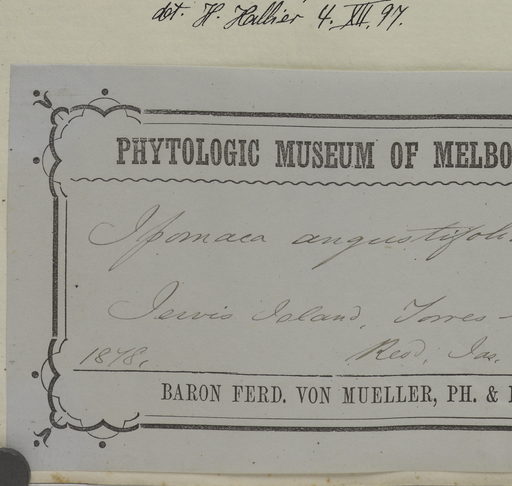 det. H. Hallier 4. XII. 97.
PHYTOLOGIC MUSEUM OF MELBO
Ipomaea angustifoli
Jervis Island, Torres -
1878. Revd. Jas.
BARON FERD. VON MUELLER, PH. &